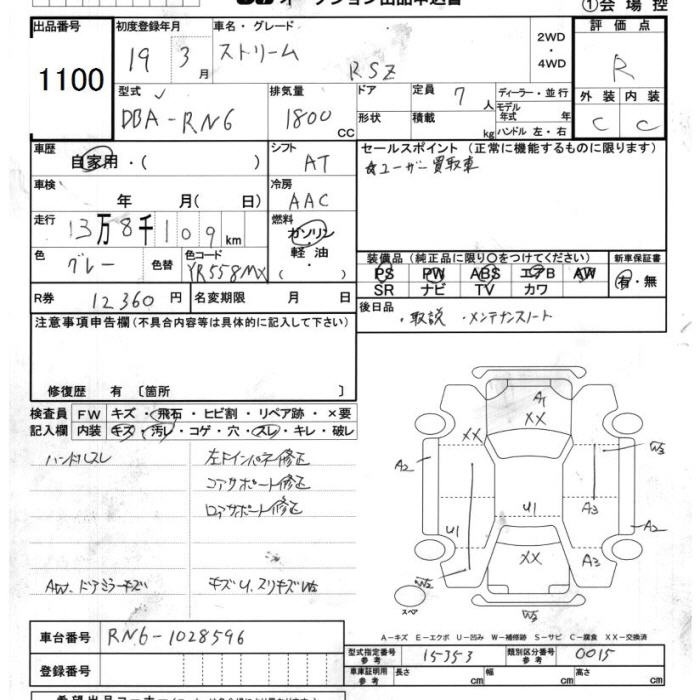 オークション出品申込書
①会場控
出品番号 1100
初度登録年月 19 3月
車名・グレード ストリーム RSZ
2WD・4WD
評価点 R
外装 C 内装 C
型式 DBA-RN6
排気量 1800 CC
ドア 形状
定員 7人 積載 kg
ディーラー・並行
モデル年式 年
ハンドル 左・右
車歴 自家用・( )
シフト AT
セールスポイント (正常に機能するものに限ります)
☆ユーザー買取車
車検 年 月( 日)
冷房 AAC
走行 13万8千109km
燃料 ガソリン・軽油・( )
色 グレー 色替 色コード YR558MX
装備品 (純正品に限り○をつけてください)
PS PW ABS エアB AW
SR ナビ TV カワ
新車保証書 有・無
R券 12360円 名変期限 月 日
後日品 ・取説 ・メンテナンスノート
注意事項申告欄 (不具合内容等は具体的に記入して下さい)
修復歴 有 [箇所 ]
検査員記入欄
FW キズ・飛石・ヒビ割・リペア跡・×要
内装 キズ・汚レ・コゲ・穴・スレ・キレ・破レ
ハンドルスレ 左Fインパネ修正
コアサポート修正
ロアサポート修正
AW、ドアミラーキズ キズU、スリキズW2
A1
XX
XX W3
A2
A3
U1 U1 A2
XX A3
W2
スペア W2
A-キズ E-エクボ U-凹み W-補修跡 S-サビ C-腐食 XX-交換済
車台番号 RN6-1028596
登録番号
型式指定番号 参考 15353 類別区分番号 参考 0015
車庫証明用 参考 長さ cm 幅 cm 高さ cm